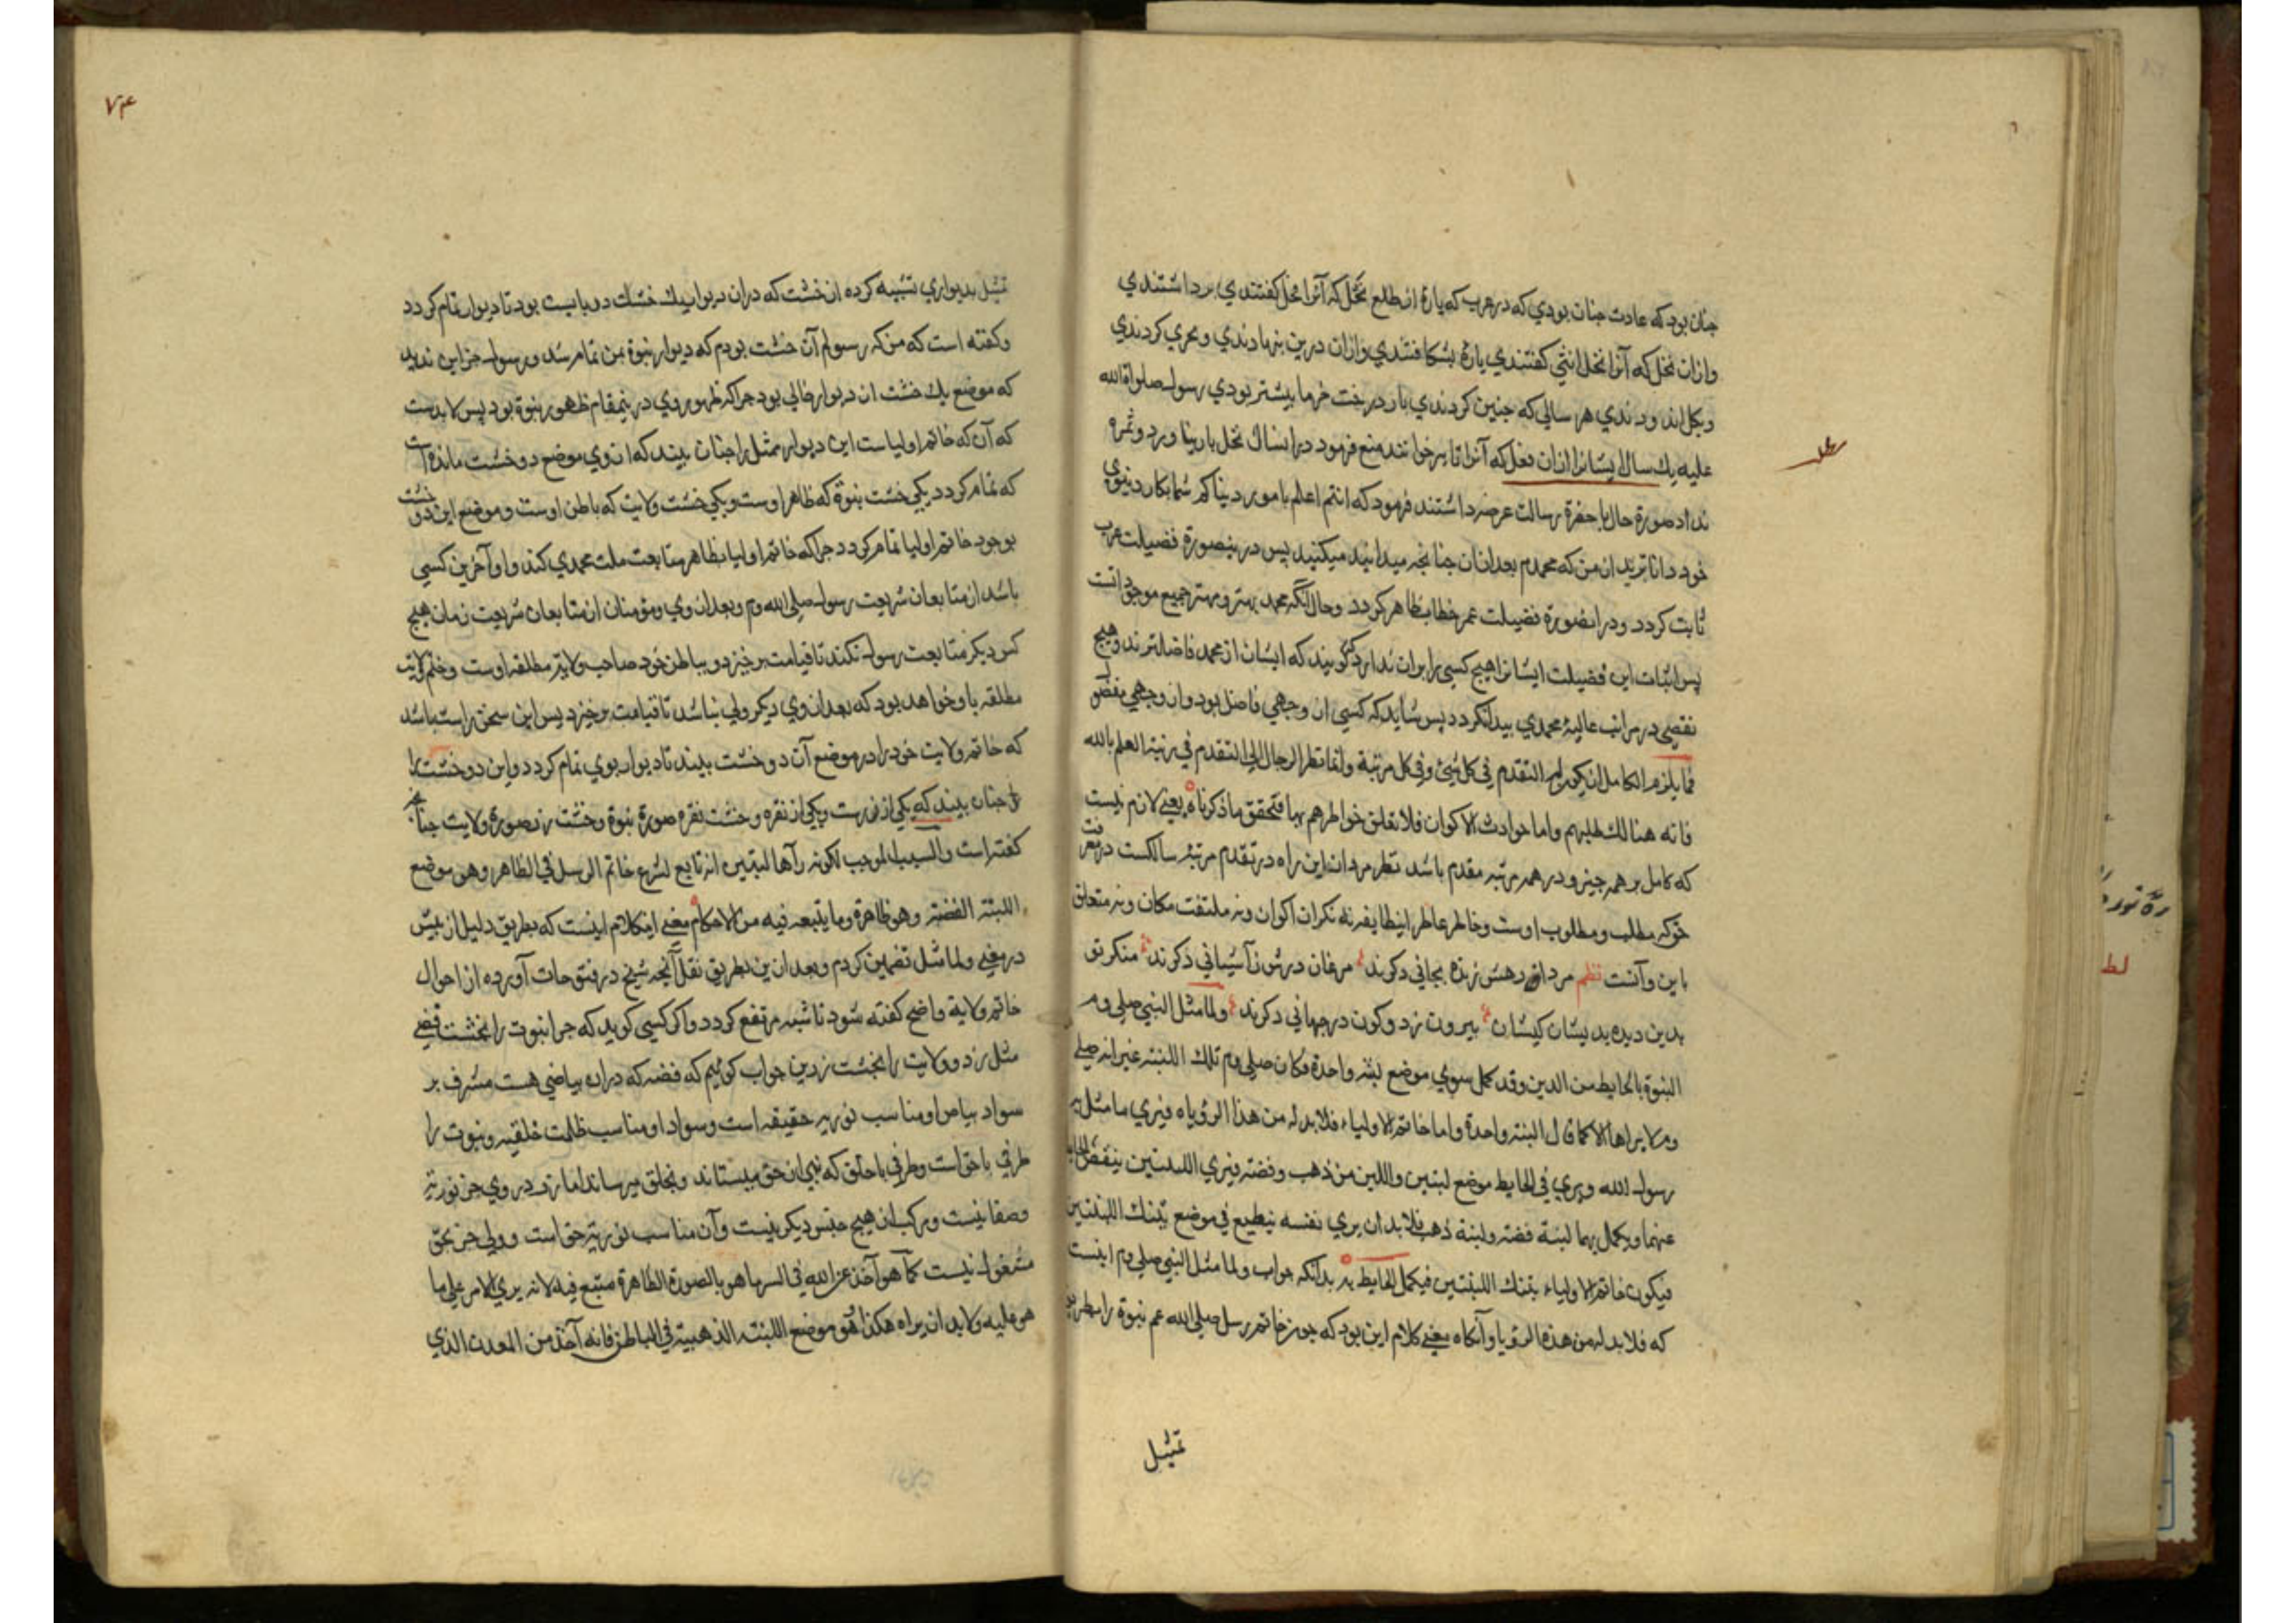 جنان بود که عادت جنان بودي که در عرب که پارۀ از طلع نخل که آنرا فحل کفتندي برداشتندي
وازان نخل که آنرا نخل انثي کفتندي پارۀ بشکافتندي وازان درين بنهادندي ومحري کردندي
وبکل اندودندي هر سالي که جنين کردندي بار درخت خرما بيشتر بودي رسول صلواة الله
عليه يك سال ايشانرا ازان فعل که آنرا تابير خوانند منع فرمود دران سال نخل بار نياورد وثمره
نداد صورة حال با حضرة رسالت عرضه داشتند فرمود که انتم اعلم بامور دنياکم شما بکار دنيوي
خود داناتريد از من که محمدم بعد ازان جنانجه ميدانيد ميکنيد پس درينصورة فضيلت عرب
ثابت کردد ودرانصورة فضيلت عمر خطاب ظاهر کردد وحال آنکه محمد بهتر ومهتر جميع موجوداتست
پس اثبات اين فضيلت ايشانرا هيج کسي را بران ندارد که کويند که ايشان از محمد فاضلترند وهيج
نقصي در مراتب عاليۀ محمدي پيدا نکردد پس شايد که کسي از وجهي فاضل بود واز وجهي مفضول
فما يلزم الکامل ان يکون له التقدم في کل شيئ وفي کل مرتبة وانما نظر الرجال الي التقدم في رتبة العلم بالله
فانه هنالك مطلبهم واما حوادث الاکوان فلا تعلق خواطرهم بها فتحقق ماذکرناه يعني لازم نيست
که کامل بر همه جيز ودر همه مرتبه مقدم باشد نظر مردان اين راه در تقدم مرتبۀ سالکست در معرفت
حق که مطلب ومطلوب اوست وخاطر عاطر اينطايفه نه نکران اکوان ونه ملتفت مکان ونه متعلق
باين وآنست نظم مردان رهش زنده بجاني دکرند مرغان درش ز آشياني دکرند منکر تو
بدين ديده بديشان کيشان بيرون ز دو کون در جهاني دکرند ولما مثل النبي صلي وم
النبوة بالحايط من اللبن وقد کمل سوي موضع لبنه واحدة فکان صلي وم تلك اللبنة غير انه صلي
وم لا يراها الا کما قال لبنه واحدة واما خاتم الاولياء فلا بد له من هذا الرؤياه فيري ما مثل به
رسول الله ويري في الحايط موضع لبنتين واللبن من ذهب وفضه فيري اللبنتين ينقص الحايط
عنهما ويکمل بهما لبنة فضه ولبنة ذهب فلابد ان يري نفسه ينطبع في موضع تينك اللبنتين
فيکون خاتم الاولياء تينك اللبنتين فيکمل الحايط به بدانکه جواب ولما مثل النبي صلي وم اينست
که فلا بد له من هذه الرؤيا وآنکاه معني کلام اين بود که جون خاتم رسل صلي الله عم نبوة را بطريق
تمثيل
٧٤
تمثيل بديواري تشبيه کرده ان خشت که دران ديوار يك خشت دربايست بود تا ديوار تمام کردد
وکفته است که من که رسولم آن خشت بودم که ديوار نبوة بمن تمام شد ورسول جز اين نديد
که موضع يك خشت ازديوار خالي بود جراکه ظهور وي درينمقام ظهور نبوة بود پس لابدست
که آن که خاتم اولياست اين ديوار ممثل را جنان بيند که ازوي موضع دو خشت مانده است
که تمام کردد يکي خشت نبوة که ظاهر اوست ويکي خشت ولايت که باطن اوست وموضع اين دو خشت
بوجود خاتم اوليا تمام کردد جراکه خاتم اوليا بظاهر متابعت ملت محمدي کند واو آخرين کسي
باشد از متابعان شريعت رسول صلي الله وم وبعد ازوي ومؤمنان از متابعان شريعت زمان هيج
کس ديکر متابعت رسول نکند تا قيامت برخيزد وبباطن خود صاحب ولايت مطلقه اوست وختم ولايت
مطلقه باو خواهد بود که بعد ازوي ديکر ولي نباشد تا قيامت برخيزد پس اين سخن راست باشد
که خاتم ولايت خود را در موضع آن دو خشت بيند تا ديوار بوي تمام کردد واين دو خشت را
جنان بيند که يکي از زرست ويکي از نقره وخشت نقره صورة نبوة وخشت زر صورة ولايت جنانجه
کفته است والسبب الموجب لکونه رآها لبنتين انه تابع لشرع خاتم الرسل في الظاهر وهو موضع
اللبنة الفضه وهو ظاهرة وما يتبعه فيه من الاحکام معني اينکلام اينست که بطريق دليل از پيش
در معني ولما مثل تضمين کردم وبعد ازين بطريق نقل آنجه شيخ در فتوحات آورده از احوال
خاتم ولاية واضح کفته شود تا شبهه مرتفع کردد واکر کسي کويد که جرا نبوت را بخشت فضي
مثل زد وولايت را بخشت زرين جواب کوئيم که فضه که دران بياضي هست مشرف بر
سواد بياض او مناسب نوريه حقيقه است وسواد او مناسب ظلمت خلقيه ونبوت را
طرفي باحق است وطرفي باخلق که نبي از حق ميستاند وبخلق ميرساند اما زر در وي جز نوريه
وصفا نيست ومرکب ازهيج جنس ديکر نيست وآن مناسب نورية حق است وولي جز بحق
مشغول نيست کما هو آخذ عن الله في السر ما هو بالصورة الظاهرة متبع فيه لانه يري الامر علي ما
هو عليه ولابد ان يراه هکذا هو موضع اللبنة الذهبية في الباطن فانه آخذ من المعدن الذي